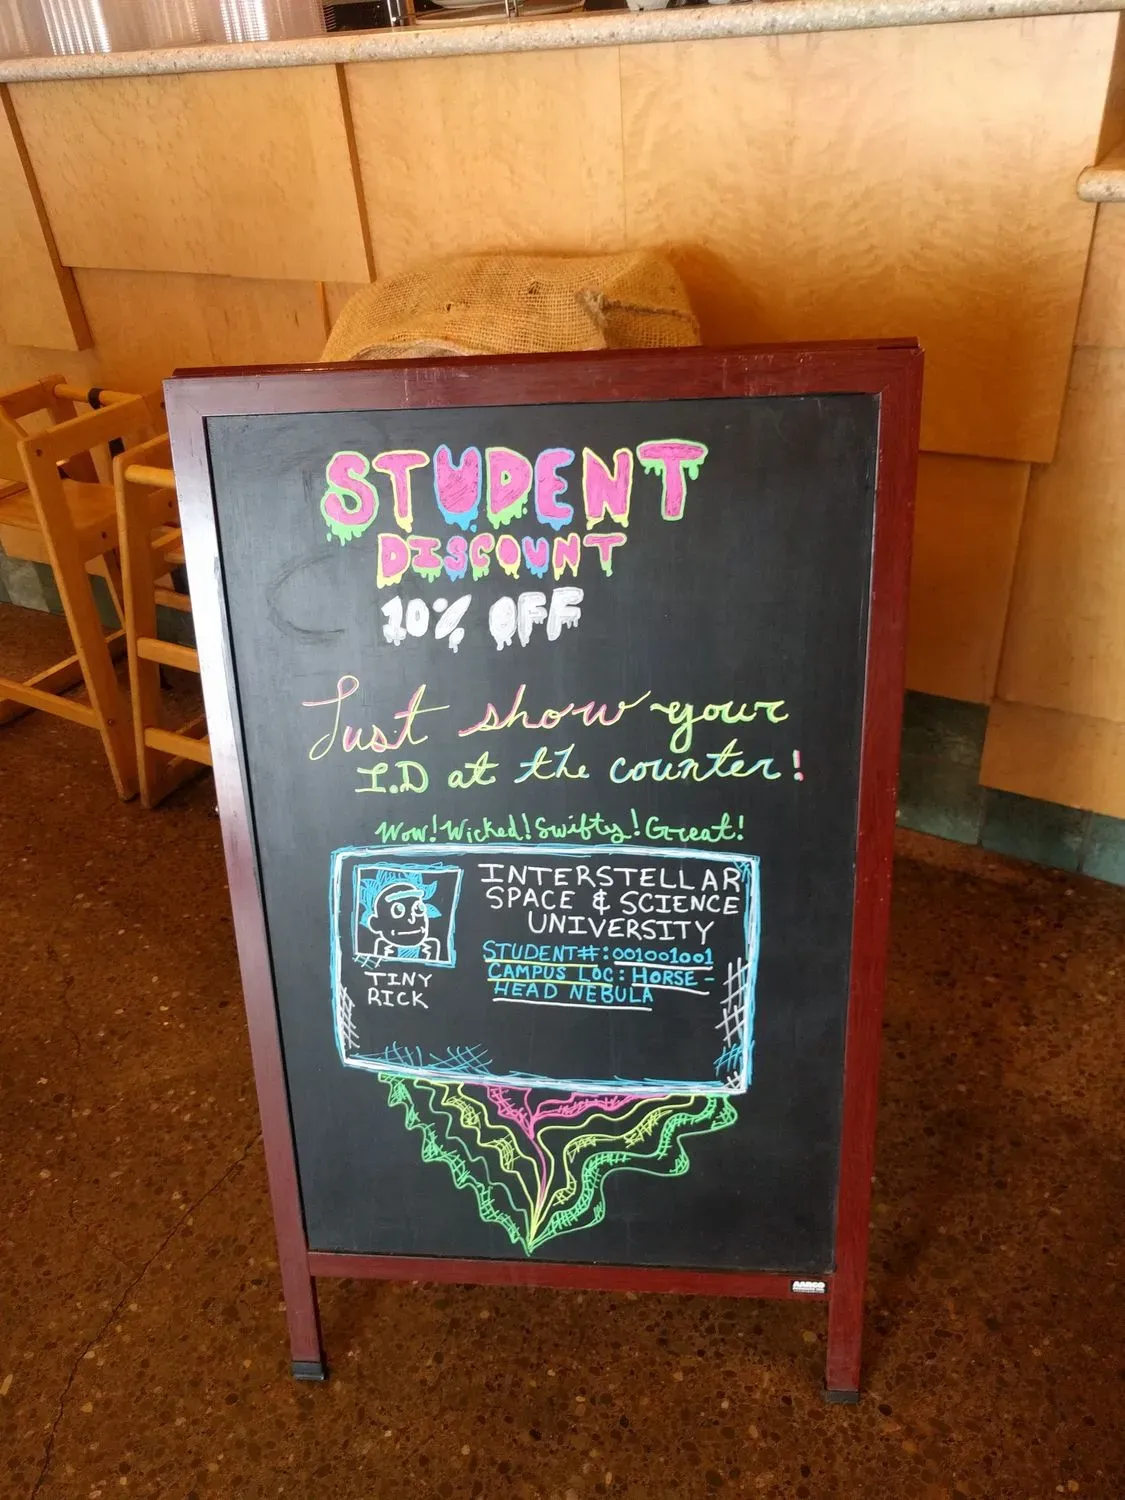 STUDENT
DISCOUNT
10% OFF
Just show your
I.D at the counter!
Wow! Wicked! Swifty! Great!
INTERSTELLAR
SPACE & SCIENCE
UNIVERSITY
STUDENT#: 001001001
CAMPUS LOC: HORSE-
HEAD NEBULA
TINY
RICK
AARCO